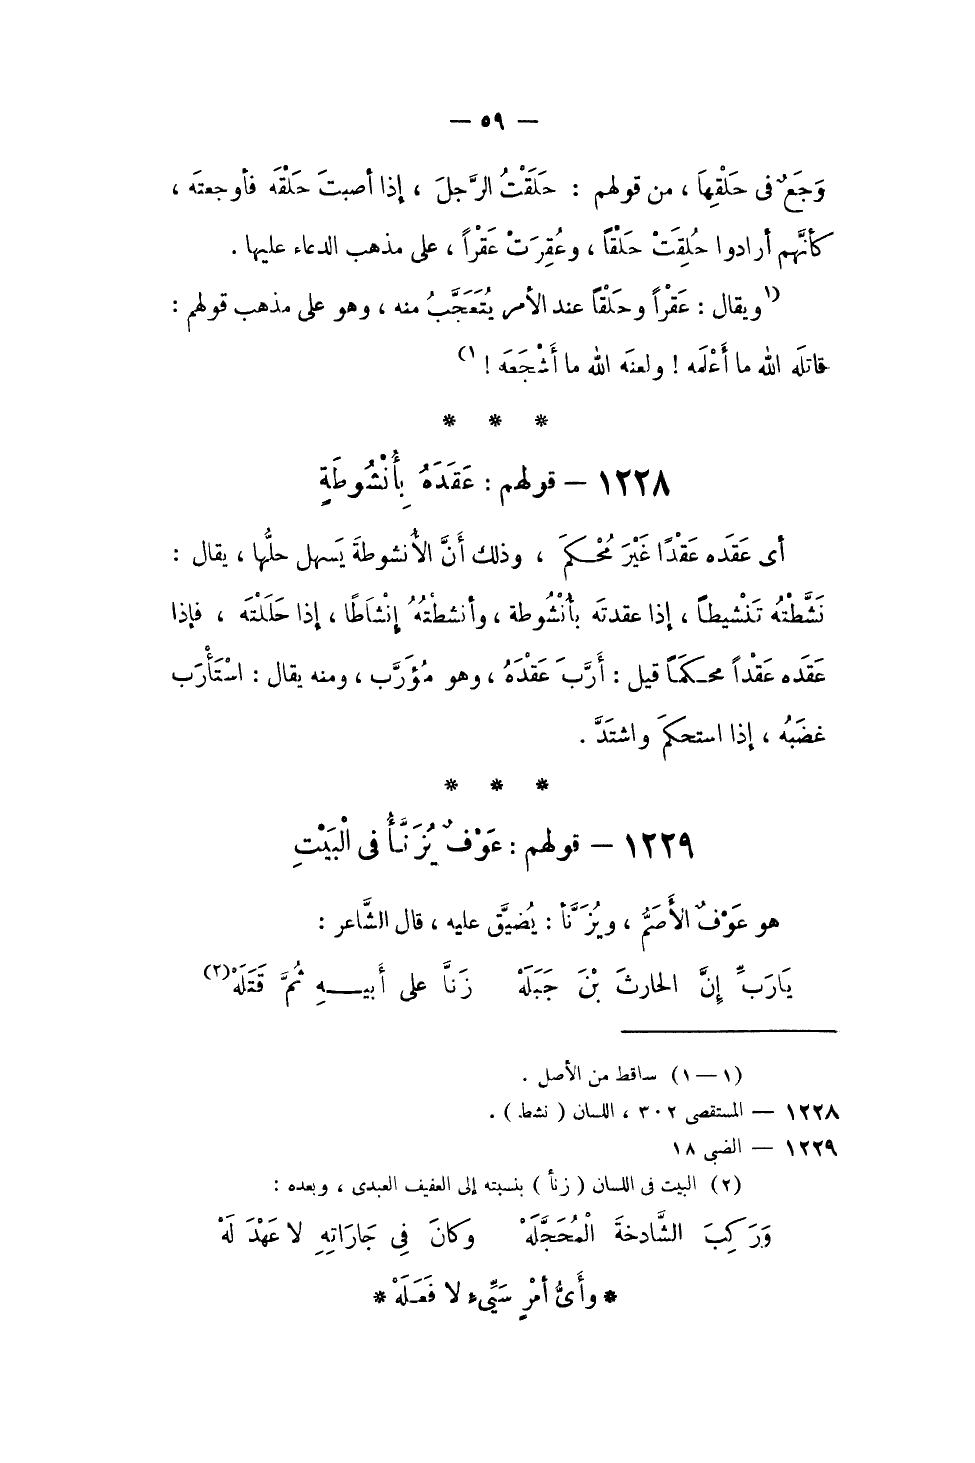 — ٥٩ —
وَجَعٌ فى حَلْقِهَا ، من قولهم : حَلَقْتُ الرَّجلَ ، إذا أصبتَ حَلْقَه فأوجعتَه ،
كأنَّهم أرادوا حُلِقَتْ حَلْقاً ، وعُقِرَتْ عَقْراً ، على مذهب الدعاء عليها .
(١ويقال : عَقْراً وحَلْقاً عند الأمر يُتَعَجَّبُ منه ، وهو على مذهب قولهم :
قاتلَه الله ما أَعْلَمَه ! ولعنَه الله ما أَشْجَعَه ! ١)
* * *
١٢٢٨ – قولهم : عَقَدَهُ بِأُنْشُوطَةٍ
أى عَقَدَه عَقْدًا غَيْرَ مُحْكمَ ، وذلك أَنَّ الأُنشوطةَ يَسهل حلُّها ، يقال :
نَشَّطْتُه تَنْشيطاً ، إذا عقدتَه بأُنْشُوطة ، وأنشطْتُهُ إنْشَاطًا ، إذا حَلَلتْهَ ، فإذا
عَقَده عَقْداً محكمَاً قيل : أَرَّبَ عَقْدَهُ ، وهو مُؤَرَّب ، ومنه يقال : اسْتَأْرَب
غضَبُه ، إذا استحكمَ واشتدَّ .
* * *
١٢٢٩ – قولهم : عَوْفٌ يُزَنَّأُ فى الْبَيْتِ
هو عَوْفٌ الأَصَمُّ ، ويُزَنَّأ : يُضيَّق عليه ، قال الشَّاعر :
يَارَبِّ إنَّ الحارثَ بْنَ جَبَلَهْ زَنَّا على أَبيـهِ ثُمَّ قَتَلَهْ(٢)
(١ – ١) ساقط من الأصل .
١٢٢٨ – المستقصى ٣٠٢ ، اللسان ( نشط ) .
١٢٢٩ – الضبى ١٨
(٢) البيت فى اللسان ( زنأ ) بنسبته إلى العفيف العبدى ، وبعده :
وَرَكِبَ الشَّادخةَ الْمُحَجَّلَهْ وكانَ فِى جَارَاتِهِ لا عَهْدَ لَهْ
* وأَىُّ أَمْرٍ سَيِّىءٍ لا فَعَلَهْ *